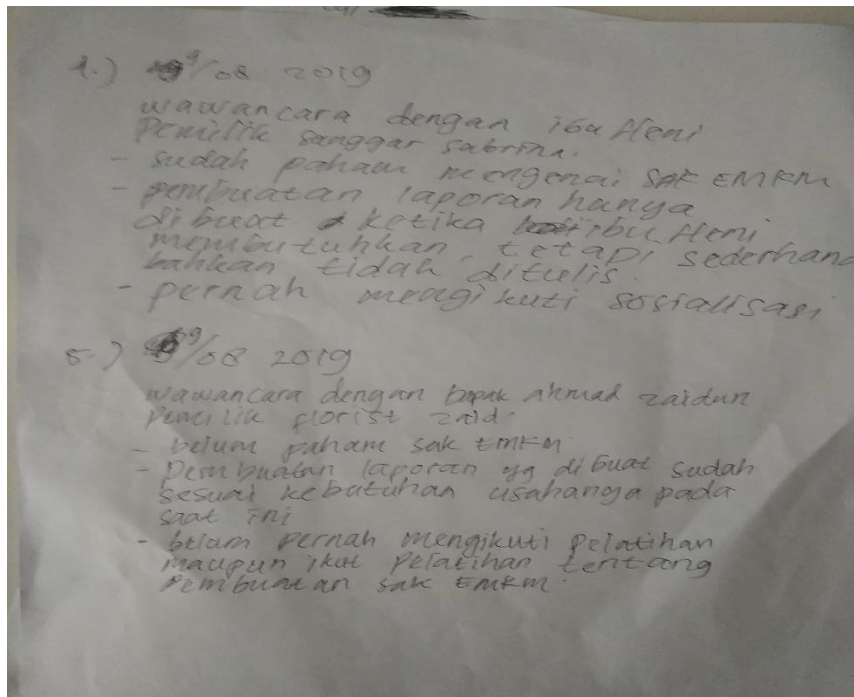 4.) 9/08 2019
wawancara dengan ibu Heni
Pemilik sanggar sabrina.
- sudah paham mengenai SAK EMKM
- pembuatan laporan hanya
dibuat ketika ibu Heni
membutuhkan, tetapi sederhana
bahkan tidak ditulis.
- pernah mengikuti sosialisasi
5.) 9/08 2019
wawancara dengan bapak ahmad zaidun
Pemilik florist zaid.
- belum paham sak EMKM
- Pembuatan laporan yg dibuat sudah
sesuai kebutuhan usahanya pada
saat ini
- belum pernah mengikuti pelatihan
maupun ikut pelatihan tentang
pembuatan sak EMKM.